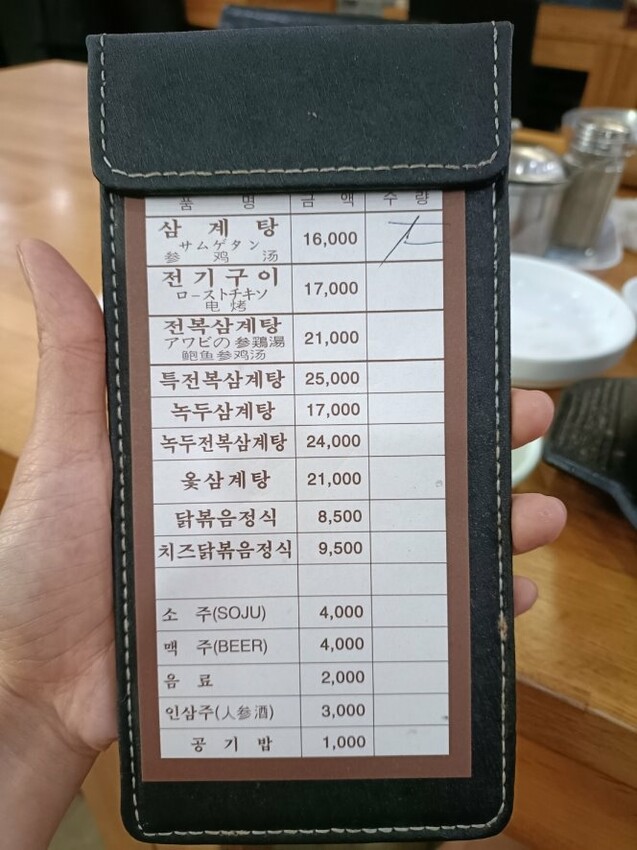 품 명 금 액 수 량
삼 계 탕 16,000
サムゲタン
参 鸡 汤
전기구이 17,000
ローストチキソ
电 烤
전복삼계탕 21,000
アワビの参鶏湯
鲍鱼参鸡汤
특전복삼계탕 25,000
녹두삼계탕 17,000
녹두전복삼계탕 24,000
옻삼계탕 21,000
닭볶음정식 8,500
치즈닭볶음정식 9,500
소 주(SOJU) 4,000
맥 주(BEER) 4,000
음 료 2,000
인삼주(人参酒) 3,000
공 기 밥 1,000